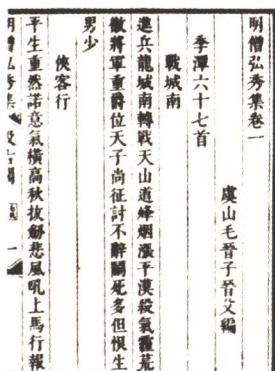 明僧弘秀集卷一
虞山毛晉子晉父編
季潭六十七首
戰城南
進兵龍城南轉戰天山道烽烟漲平漠殺氣霾荒
徼將軍重爵位天子尚征討不辭鬬死多但恨生
男少
俠客行
平生重然諾意氣橫高秋拔劒悲風吼上馬行報
明僧弘秀集 汲古閣 一